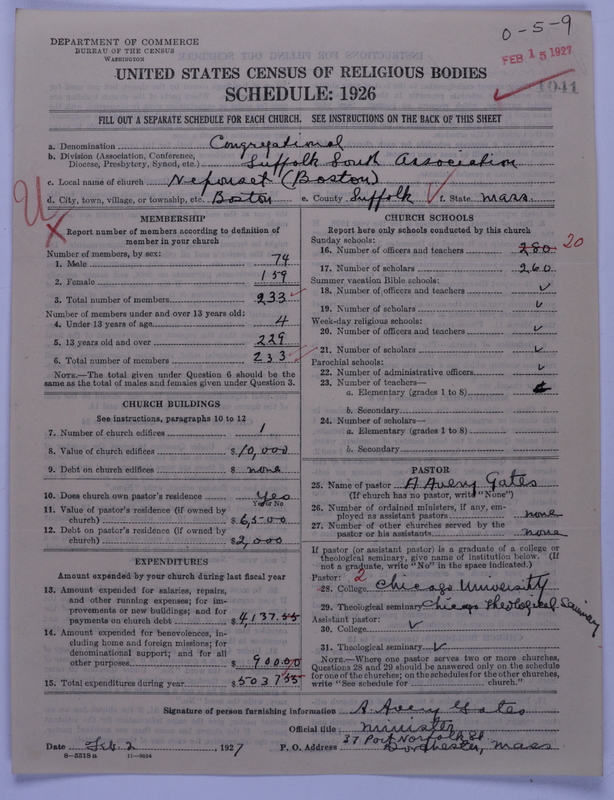 0-5-9
DEPARTMENT OF COMMERCE
BUREAU OF THE CENSUS
WASHINGTON
FEB 15 1927
1941
UNITED STATES CENSUS OF RELIGIOUS BODIES
SCHEDULE: 1926
FILL OUT A SEPARATE SCHEDULE FOR EACH CHURCH. SEE INSTRUCTIONS ON THE BACK OF THIS SHEET
a. Denomination Congregational
b. Division (Association, Conference, Diocese, Presbytery, Synod, etc.) Suffolk South Association
c. Local name of church Neponset (Boston)
d. City, town, village, or township, etc. Boston e. County Suffolk f. State Mass.
MEMBERSHIP
Report number of members according to definition of
member in your church
Number of members, by sex:
1. Male 74
2. Female 159
3. Total number of members 233
Number of members under and over 13 years old:
4. Under 13 years of age 4
5. 13 years old and over 229
6. Total number of members 233
NOTE.—The total given under Question 6 should be
same as the total of males and females given under Question 3.
CHURCH BUILDINGS
See instructions, paragraphs 10 to 12
7. Number of church edifices 1
8. Value of church edifices $10,000
9. Debt on church edifices $ none
10. Does church own pastor's residence Yes
Yes or No
11. Value of pastor's residence (if owned by
church) $6,500
12. Debt on pastor's residence (if owned by
church) $2,000
EXPENDITURES
Amount expended by your church during last fiscal year
13. Amount expended for salaries, repairs,
and other running expenses; for im-
provements or new buildings; and for
payments on church debt $4137.55
14. Amount expended for benevolences, in-
cluding home and foreign missions; for
denominational support; and for all
other purposes $900.00
15. Total expenditures during year $5037.55
CHURCH SCHOOLS
Report here only schools conducted by this church
Sunday schools:
16. Number of officers and teachers 280 20
17. Number of scholars 260
Summer vacation Bible schools:
18. Number of officers and teachers ✓
19. Number of scholars ✓
Week-day religious schools:
20. Number of officers and teachers ✓
21. Number of scholars ✓
Parochial schools:
22. Number of administrative officers ✓
23. Number of teachers—
a. Elementary (grades 1 to 8)
b. Secondary
24. Number of scholars—
a. Elementary (grades 1 to 8)
b. Secondary
PASTOR
25. Name of pastor A Avery Gates
(If church has no pastor, write "None")
26. Number of ordained ministers, if any, em-
ployed as assistant pastors none
27. Number of other churches served by the
pastor or his assistants none
If pastor (or assistant pastor) is a graduate of a college or
theological seminary, give name of institution below. (If
not a graduate, write "No" in the space indicated.)
Pastor: 2
28. College Chicago University
29. Theological seminary Chicago Theological Seminary
Assistant pastor:
30. College ✓
31. Theological seminary ✓
NOTE.—Where one pastor serves two or more churches,
Questions 28 and 29 should be answered only on the schedule
for one of the churches; on the schedules for the other churches,
write "See schedule for church."
Signature of person furnishing information A. Avery Gates
Official title minister
Date Feb. 2, 1927 P. O. Address 37 Port Norfolk St
Dorchester, Mass
8-5318a 11-9034